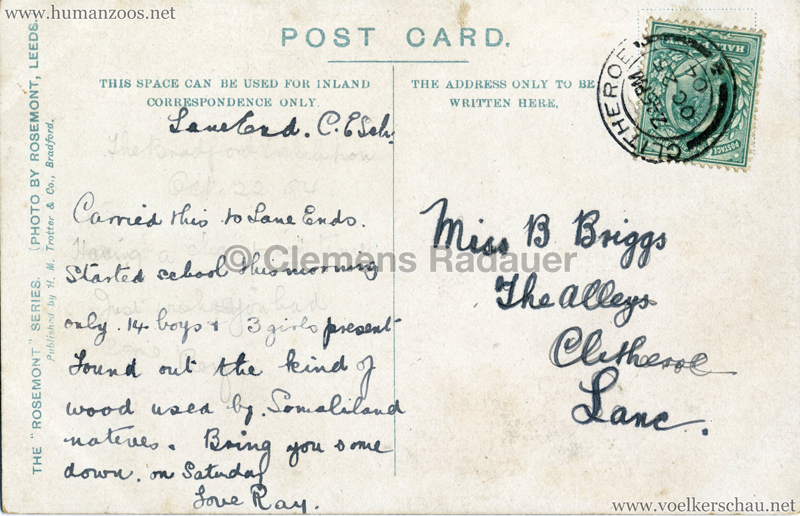 www.humanzoos.net
POST CARD.
THIS SPACE CAN BE USED FOR INLAND
CORRESPONDENCE ONLY.
THE ADDRESS ONLY TO BE
WRITTEN HERE.
THE "ROSEMONT" SERIES. (PHOTO BY ROSEMONT, LEEDS.
Published by H. M. Trotter & Co., Bradford.
Lane End. C.E Sch.
The Bradford Exhibition
Oct 22 04
Carried this to Lane Ends.
Having a
Started school this morning
Just
you had
only 14 boys + 3 girls present
Found out the kind of
wood used by Somaliland
natives. Bring you some
down. on Saturday
Love Ray.
Miss B Briggs
The Alleys
Clitheroe
Lanc.
CLITHEROE
PM
OC
04
HALF
POSTAGE
© Clemens Radauer
www.voelkerschau.net